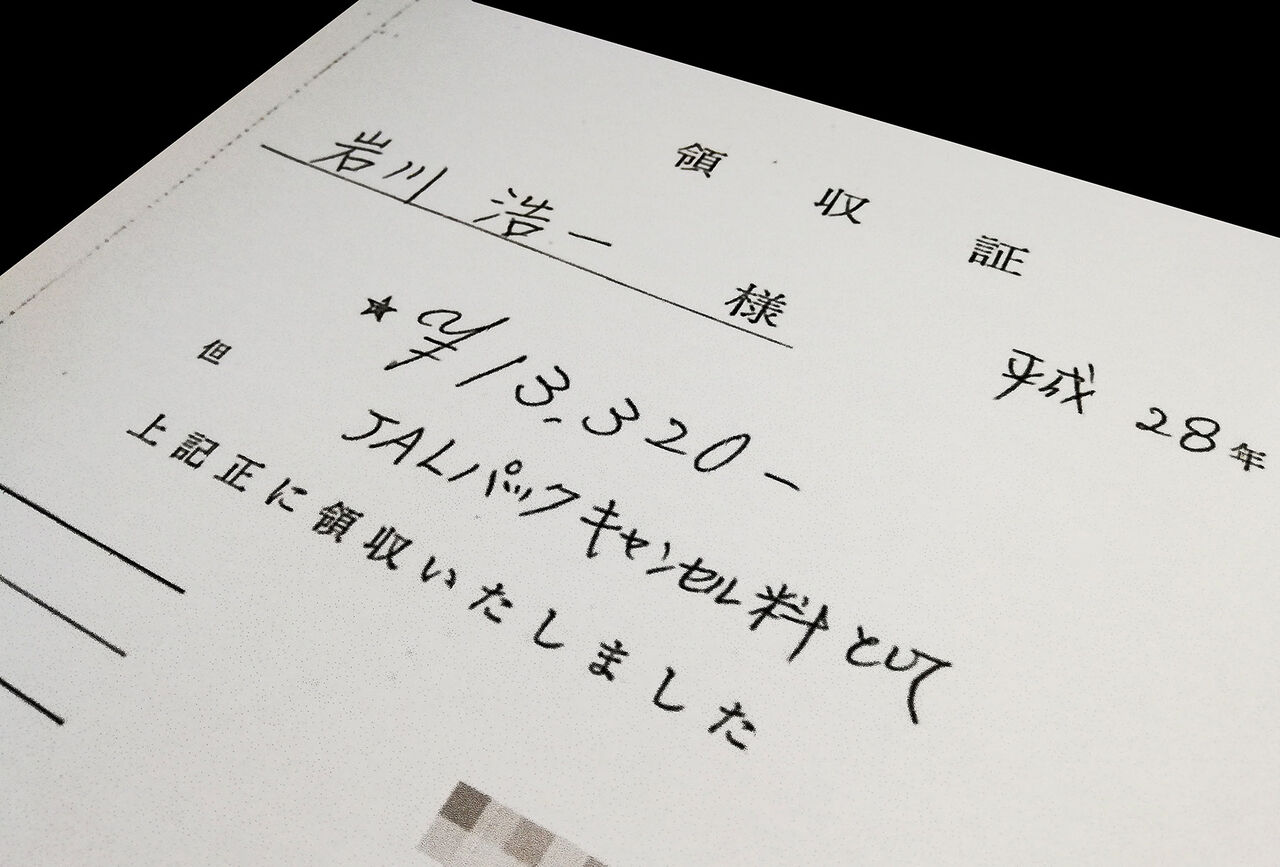 領収証
岩川 浩一 様
平成 28年
★ ¥13,320-
但 JALパックキャンセル料として
上記正に領収いたしました